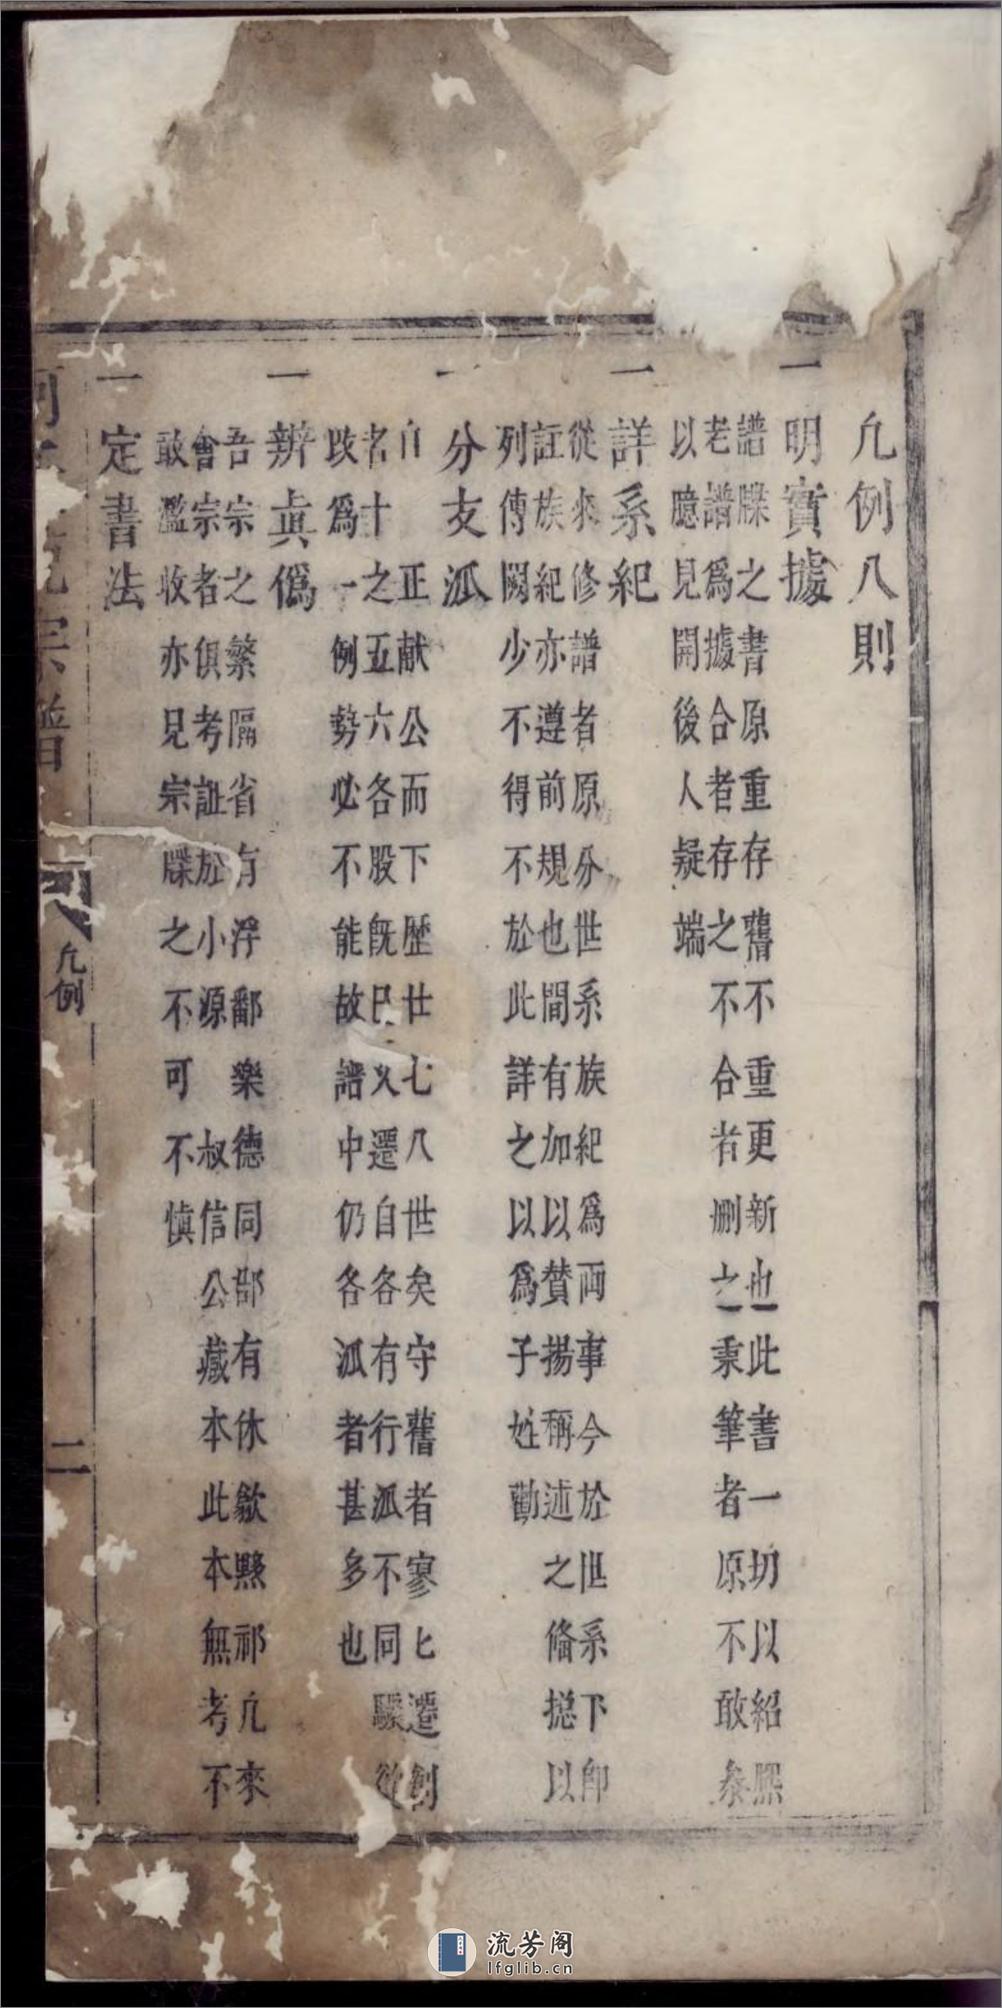 凢例八則
一明實據
譜牒之書原重存舊不重更新也此書一切以紹熙
老譜為據合者存之不合者刪之秉筆者原不敢參
以臆見開後人疑端
一詳系紀
從來修譜者原分世系族紀為両事今於世系下即
註族紀亦遵前規也間有加以賛揚稱述之條搃以
列傳闕少不得不於此詳之以為子姓勸
一分支派
自正献公而下歷廿七八世矣守舊者寥匕遷創
者十之五六各股既已义遷自各有行派不同驟從
歧為一例勢必不能故譜中仍各派者甚多也
一辨眞僞
吾宗之繁隔省有浮鄱樂德同部有休歙黟祁凢來
會宗者俱考証於小源 叔信公藏本此本無考不
敢濫收亦見宗牒之不可不慎
一定書法
宗譜
凢例
二
流芳阁
lfglib.cn